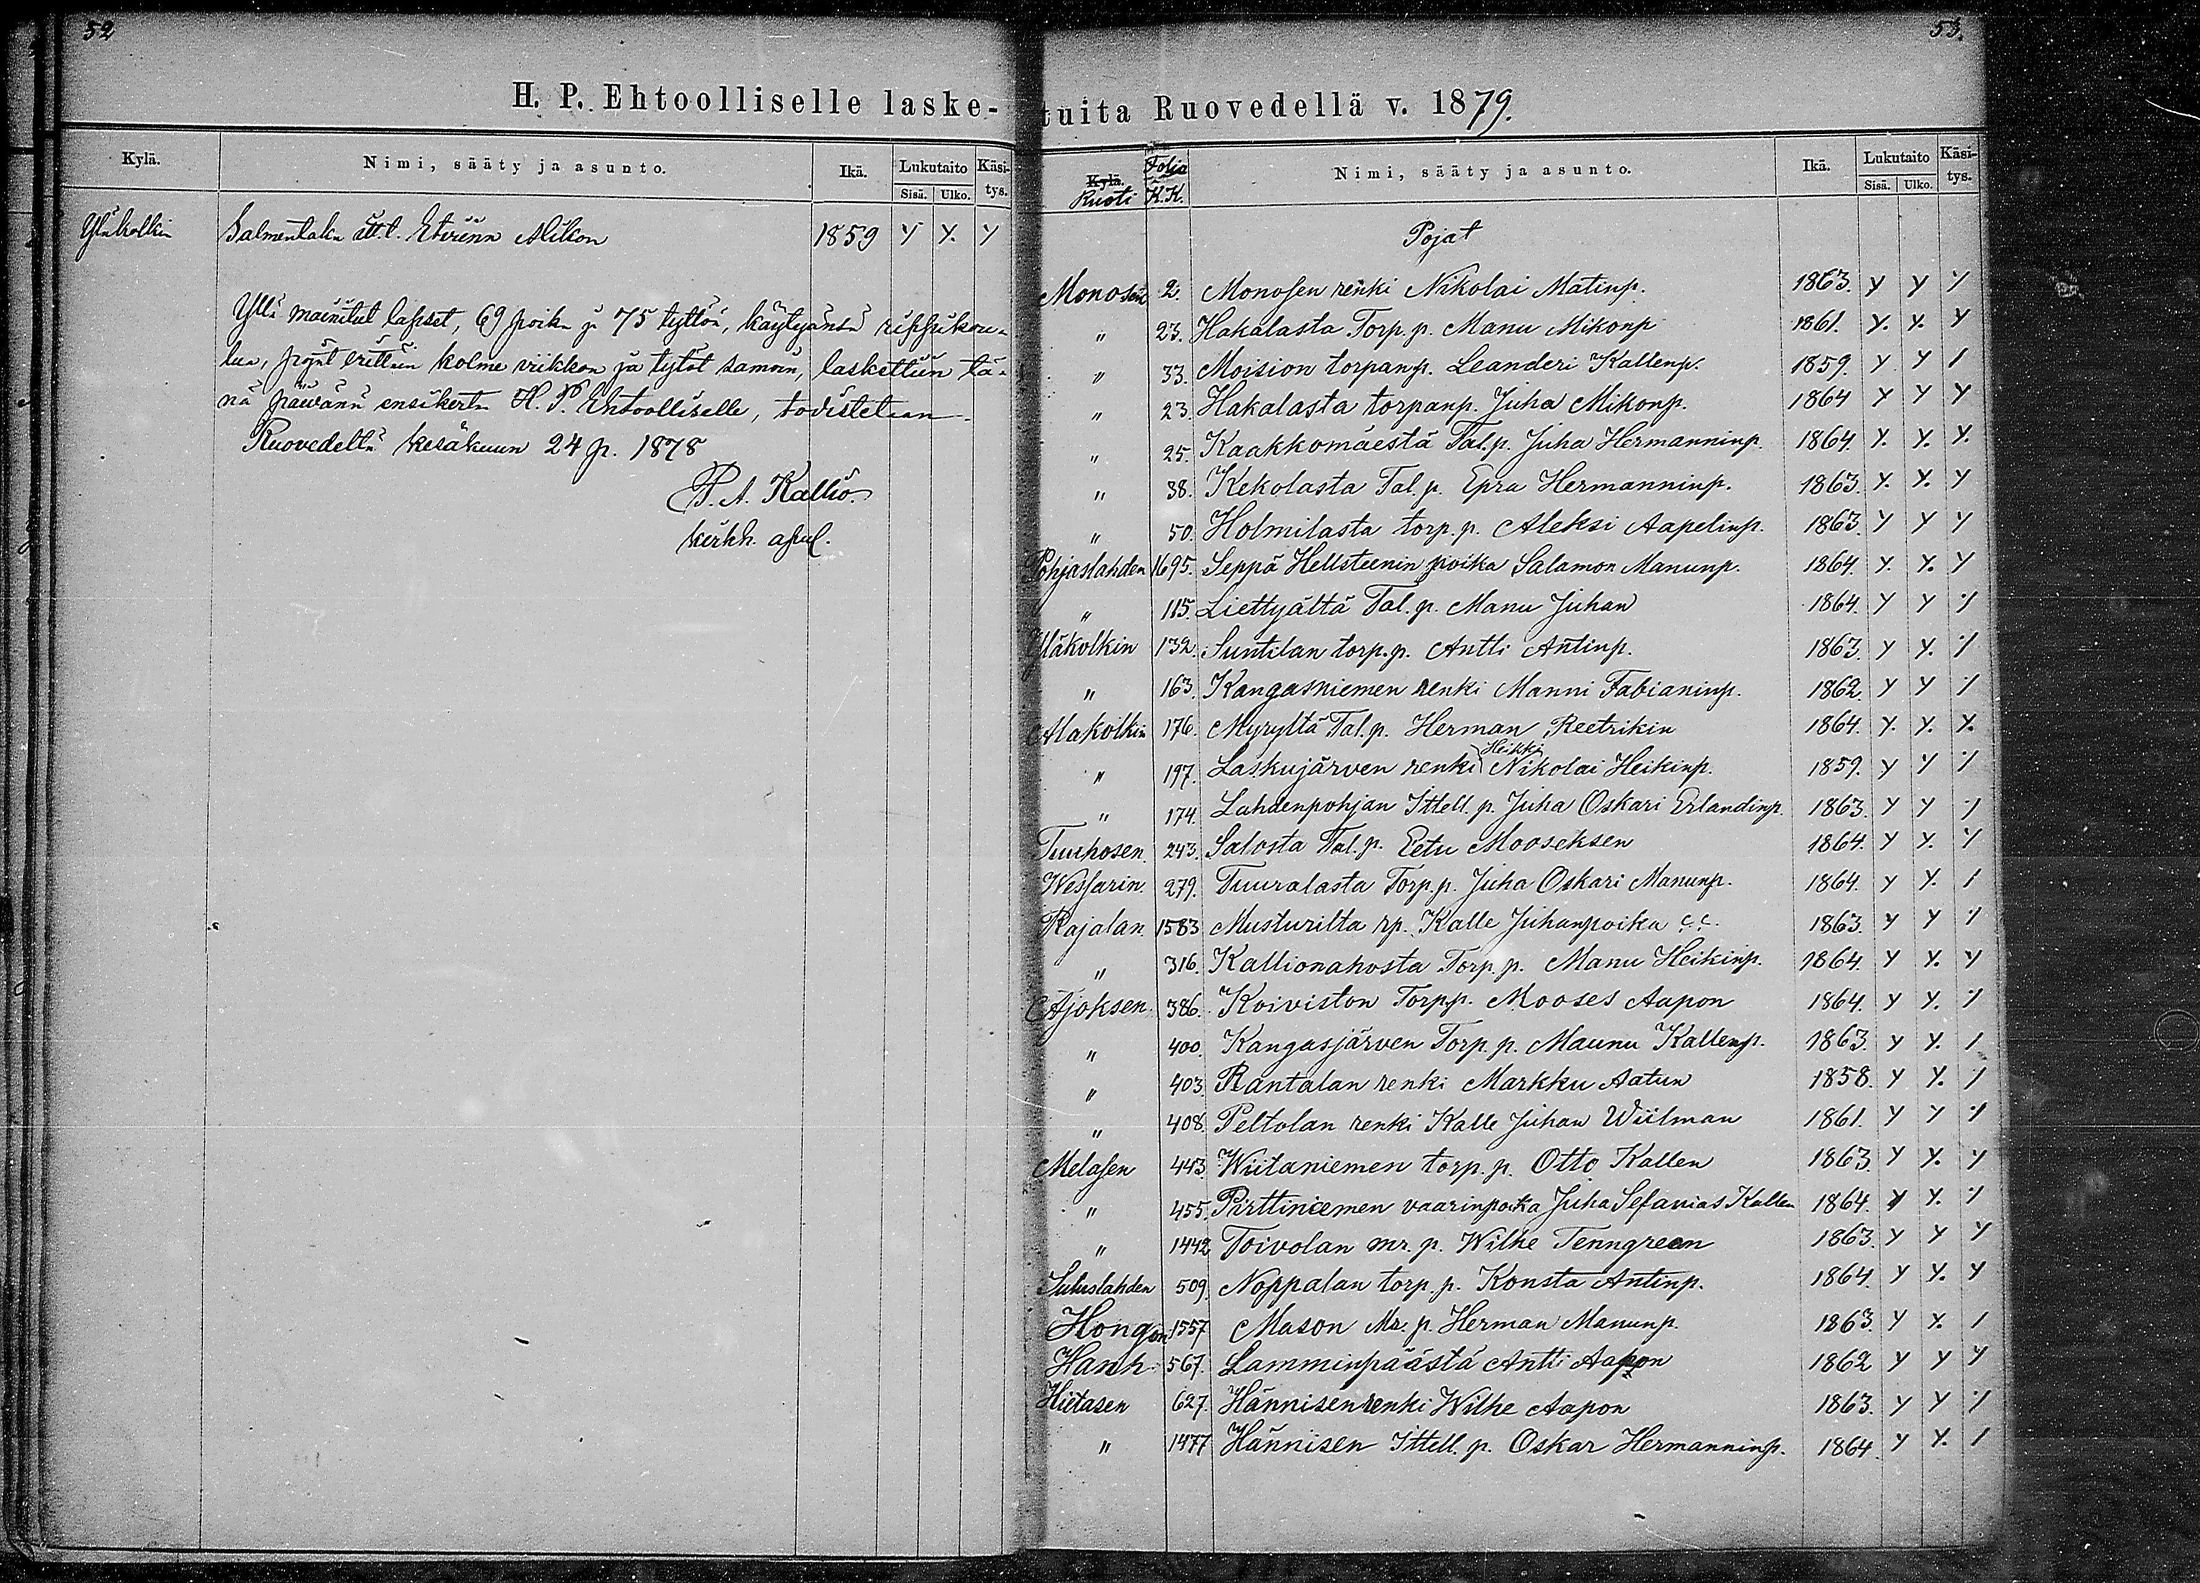 52
H. P. Ehtoolliselle laske-
Kylä. Nimi, sääty ja asunto. Ikä. Lukutaito Käsi-
Sisä. Ulko. tys.
Yläkolkin Salmentaka itt.t. Eveliina Mikon 1859 y y. y
Yllä mainitut lapset, 69 poikaa ja 75 tyttöä, käytyänsä rippikou-
lua, pojat erittäin kolme viikkoa ja tytöt samoin, laskettiin tä-
nä päivänä ensikerta H. P. Ehtoolliselle, todistetaan
Ruovedeltä kesäkuun 24 p. 1878
P. A. Kallio
kirkh. apul.
53.
tuita Ruovedellä v. 1879.
Kylä. Ruoti Folio K.K. Nimi, sääty ja asunto. Ikä. Lukutaito Käsi-
Sisä. Ulko. tys.
Pojat
Monosen 2. Monosen renki Nikolai Matinp. 1863. y y y
" 23. Hakalasta Torp. p. Manu Mikonp 1861. y. y. y
" 33. Moision torpanp. Leanderi Kallenp. 1859. y y /
" 23. Hakalasta torpanp. Juha Mikonp. 1864 y y y
" 25. Kaakkomäestä Tal.p. Juha Hermanninp. 1864. y. y. y.
" 38. Kekolasta Tal. p. Epra Hermanninp. 1863. y. y. y
" 50. Holmilasta torp. p. Aleksi Aapelinp. 1863. y y y
Pohjaslahden 1695. Seppä Hellsteenin poika Salamon Manunp. 1864. y. y. y
" 115. Liettyältä Tal. p. Manu Juhan 1864. y y y
Yläkolkin 132. Suntilan torp. p. Antti Antinp. 1863. y y. y
" 163. Kangasniemen renki Manni Fabianinp. 1862 y y y
Alakolkin 176. Myryltä Tal. p. Herman Reetrikin 1864. y. y. y.
Heikki
" 197. Laskujärven renki Nikolai Heikinp. 1859. y y y
" 174. Lahdenpohjan Ittell. p. Juha Oskari Erlandinp. 1863. y y y
Tuuhosen 243. Salosta Tal. p. Eetu Mooseksen 1864. y y. y
Wessarin. 279. Tuuralasta Torp. p. Juha Oskari Manunp. 1864. y y. /
Rajalan. 1583 Musturilta rp. Kalle Juhanpoika 1863. y y y
" 316. Kallionahosta Torp. p. Manu Heikinp. 1864. y y. y
Ajoksen. 386. Koiviston Torp.p. Mooses Aapon 1864. y y. y
" 400. Kangasjärven Torp. p. Maunu Kallenp. 1863. y y. /
" 403. Rantalan renki Markku Aatun 1858. y y. y
" 408. Peltolan renki Kalle Juhan Wiilman 1861. y y y
Melasen 443. Wiitaniemen torp. p. Otto Kallen 1863. y y. y
" 455. Pirttiniemen vaarinpoika Juha Sefanias Kallen 1864. y y. y
" 1442 Toivolan mr. p. Wilhe Tenngreen 1863. y y y
Suluslahden 509. Noppalan torp. p. Konsta Antinp. 1864. y y. y
Hongon 1557 Mason Mr. p. Herman Manunp. 1863. y y. /
Hanh. 567. Lamminpäästä Antti Aapon 1862 y y y
Hietasen 627. Hännisen renki Wilhe Aapon 1863. y y y
" 1477 Hännisen Ittell. p. Oskar Hermanninp. 1864. y y. /